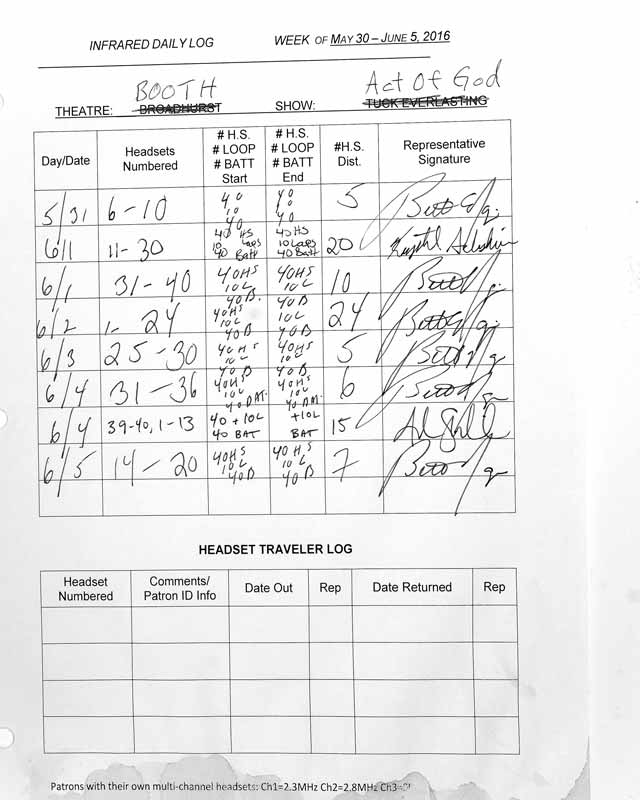 INFRARED DAILY LOG WEEK OF MAY 30 – JUNE 5, 2016
BOOTH Act Of God
THEATRE: BROADHURST SHOW: TUCK EVERLASTING
Day/Date Headsets Numbered # H.S. # LOOP # BATT Start # H.S. # LOOP # BATT End #H.S. Dist. Representative Signature
5/31 6-10 40 10 40 40 10 40 5
6/1 11-30 40 HS 10 Loops 40 Batt 40 HS 10 Loops 40 Batt 20
6/1 31-40 40HS 10L 40B. 40HS 10L 40B 10
6/2 1- 24 40HS 10L 40B 40HS 10L 40B 24
6/3 25-30 40HS 10L 40B 40HS 10L 40B 5
6/4 31-36 40HS 10L 40BAT. 40HS 10L 40BAT. 6
6/4 39-40, 1-13 40 + 10L 40 BAT +10L BAT 15
6/5 14-20 40HS 10L 40B 40HS 10L 40B 7
HEADSET TRAVELER LOG
Headset Numbered Comments/ Patron ID Info Date Out Rep Date Returned Rep
Patrons with their own multi-channel headsets: Ch1=2.3MHz Ch2=2.8MHz Ch3=